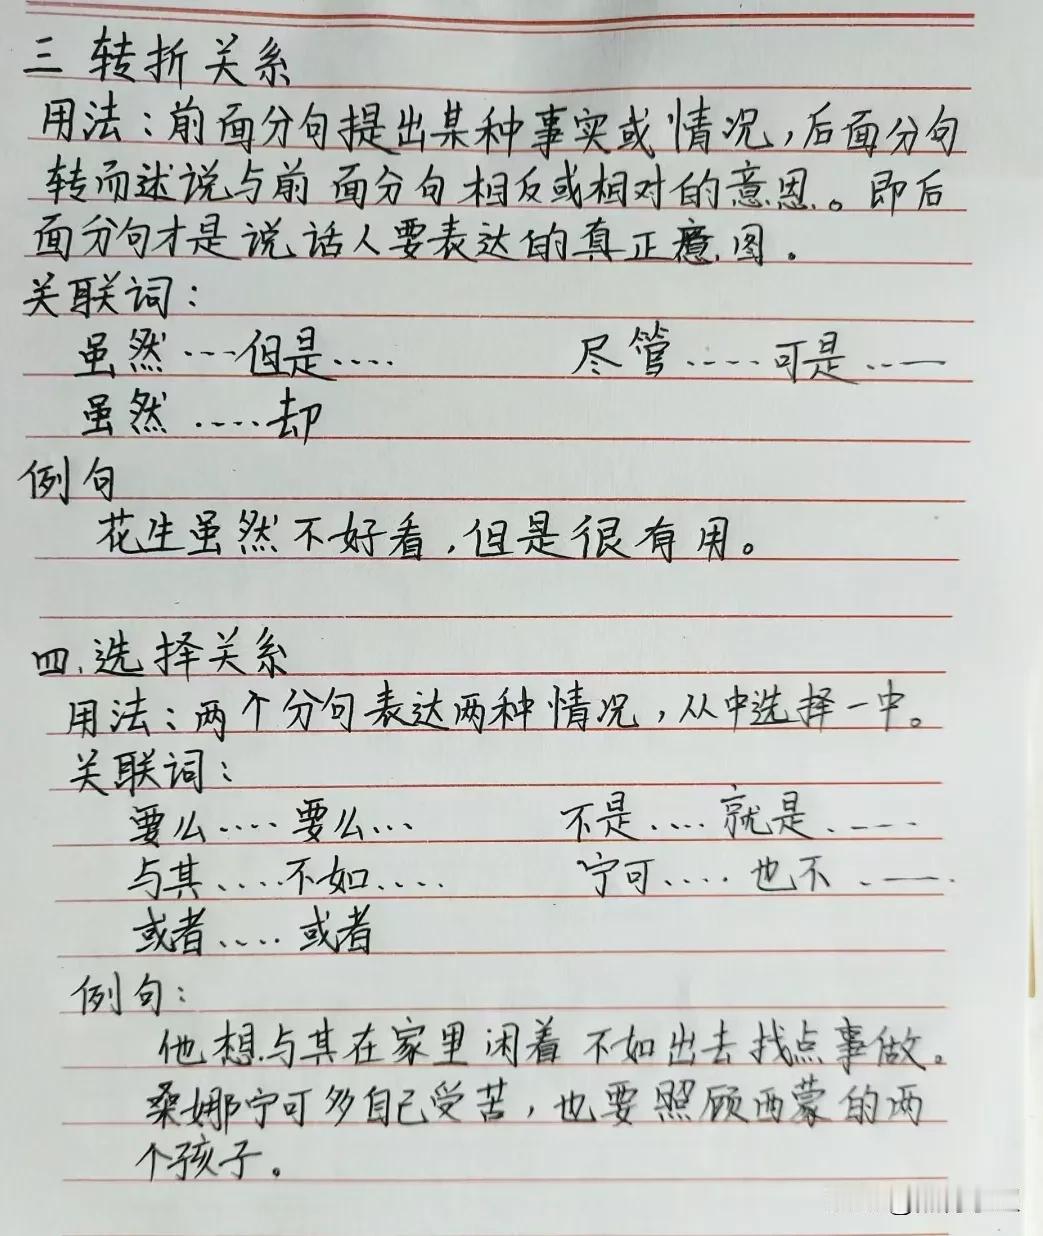 三 转折关系
用法：前面分句提出某种事实或情况，后面分句
转而述说与前面分句相反或相对的意思。即后
面分句才是说话人要表达的真正意图。
关联词：
虽然……但是……　　尽管……可是……
虽然……却
例句
花生虽然不好看，但是很有用。
四.选择关系
用法：两个分句表达两种情况，从中选择一中。
关联词：
要么……要么…　　不是……就是……
与其……不如……　　宁可……也不……
或者……或者
例句：
他想与其在家里闲着 不如出去找点事做。
桑娜宁可多自己受苦，也要照顾西蒙的两
个孩子。